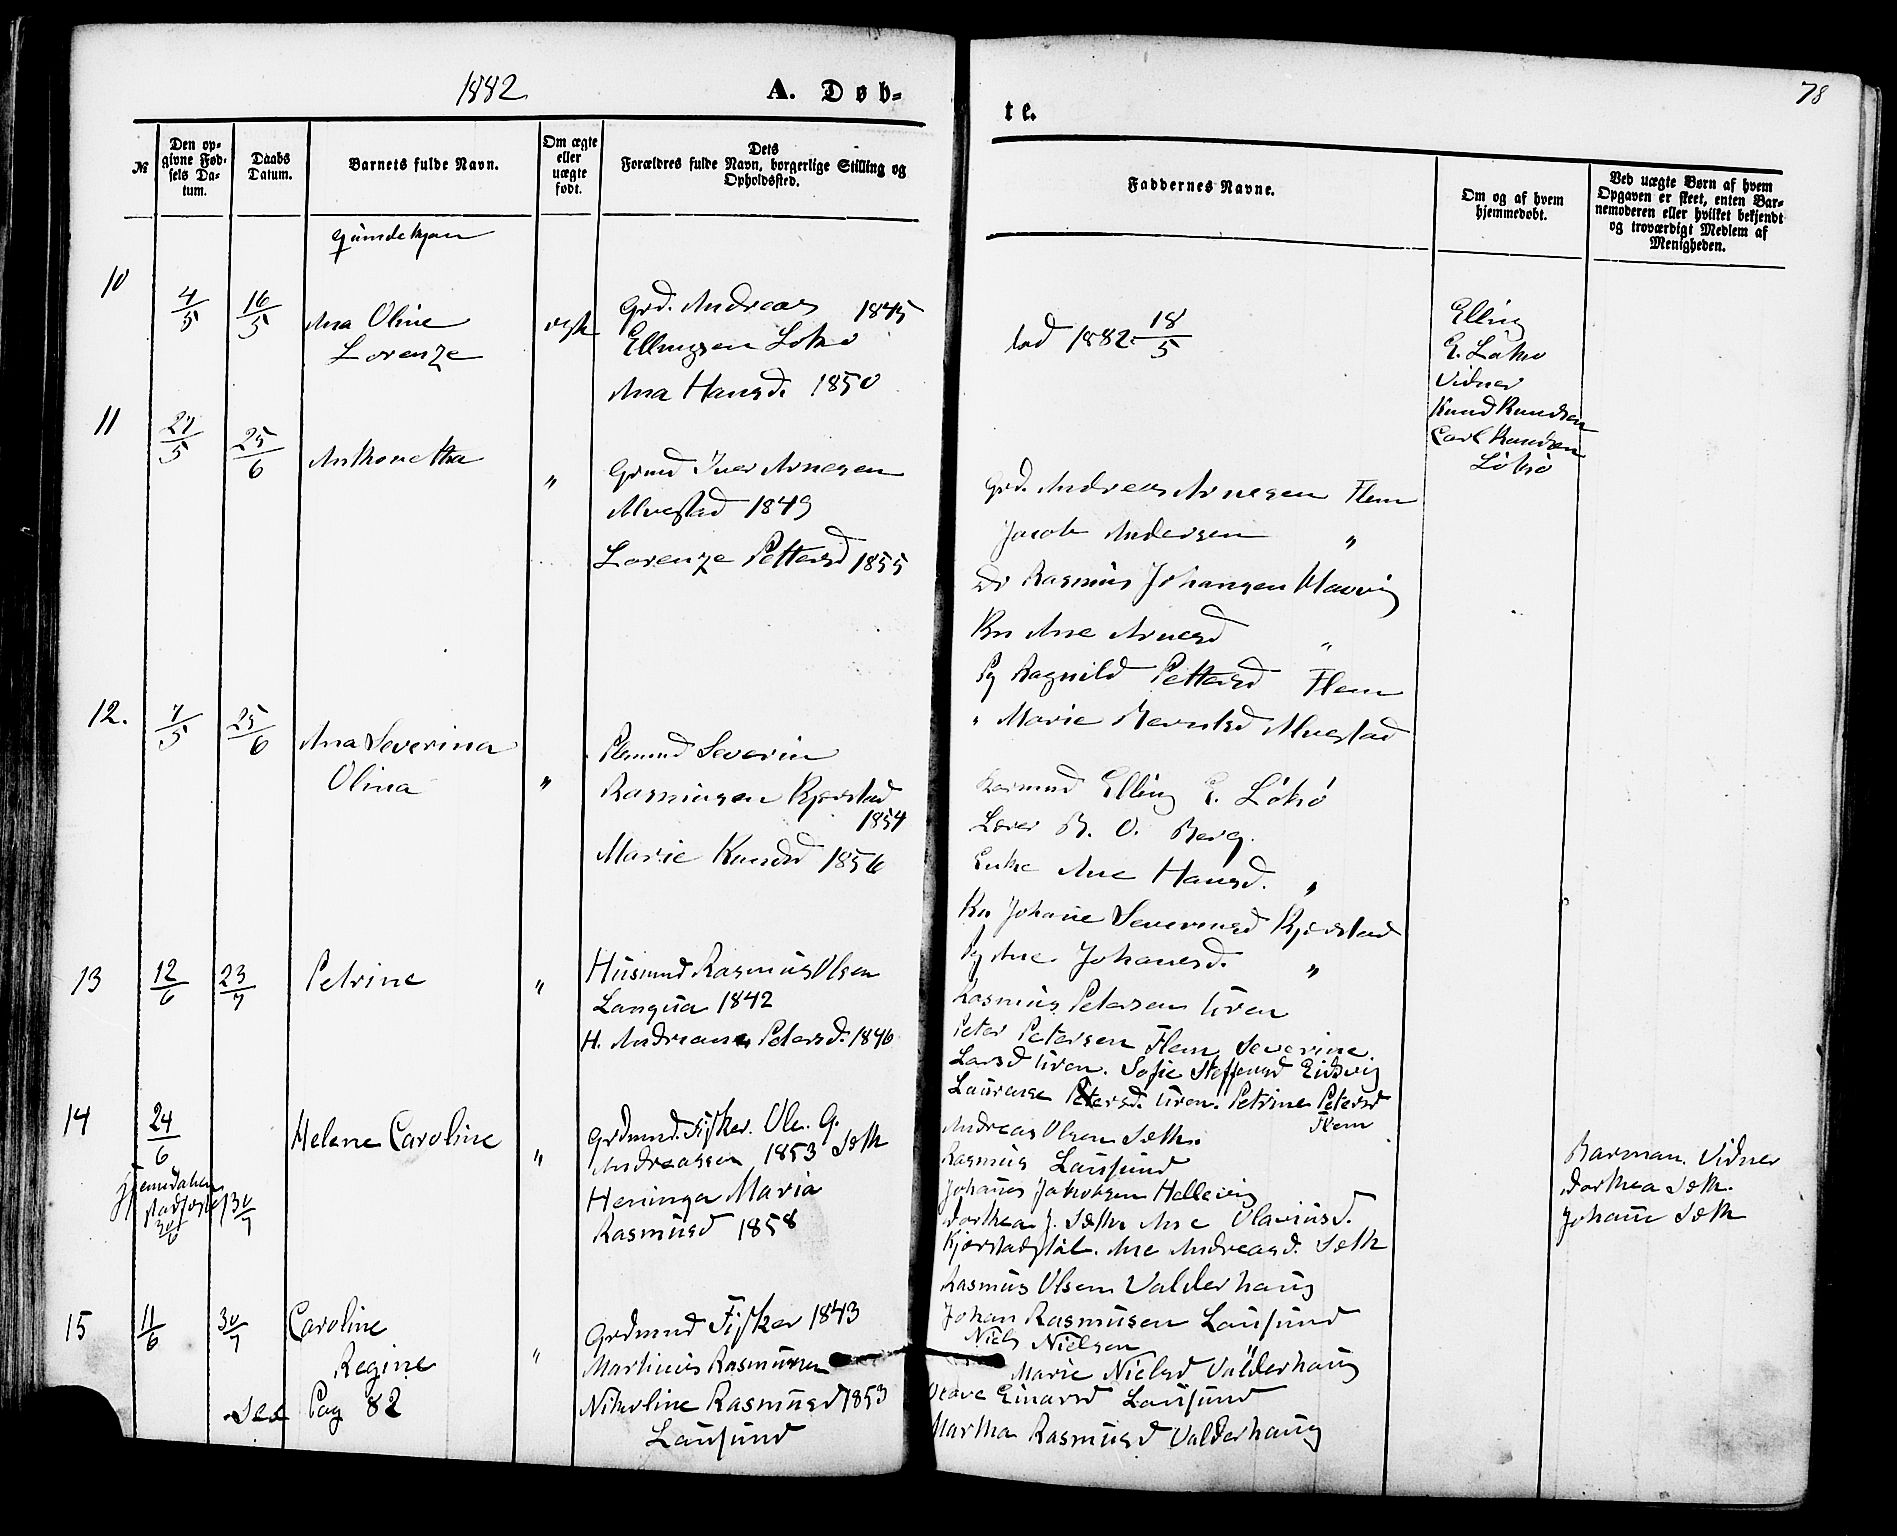 1882
A. Døb=
te.
78
№
Den op-
givne Fød-
sels Da-
tum.
Daabs
Datum.
Barnets fulde Navn.
Om ægte
eller
uægte
født.
Dets
Forældres fulde Navn, borgerlige Stilling og
Opholdssted.
Faddernes Navne.
Om og af hvem
hjemmedøbt.
Ved uægte Børn af hvem
Opgaven er skeet, enten Bar-
nemoderen eller hvilket bekjendt
og troværdigt Medlem af
Menigheden.
qvindekjøn
10
4/5
16/5
Ana Oline
Lorenze
ægte
Grd. Andreas 1845
Ellingsen Løksø
Ana Hansd. 1850
død 1882 18/5
Elling
E. Løksø
Vidner
Knud Knudsen
Carl Knudsen
Løksø
11
27/5
25/6
Anthonetha
"
Grmd Iver Arnesen
Alvestad 1849
Lorenze Pettersd 1855
Grd. Andreas Arnesen Flem
Jacob Andersen "
Rasmus Johansen Ulavvig
Kn Ane Arnesd "
Pg Ragnild Pettersd Flem
" Marie Berntsd Alvestad
12.
7/5
25/6
Ana Severina
Olina
"
Severin
Rasmusen Kjerstad
1854
Marie Knudsd 1856
Elling E. Løksø
Lærer B. O. Berg.
Enke Ane Hansd. "
Kn Johane Severinsd Kjerstad
Pg Ane Johanesd. "
13
12/6
23/7
Petrine
"
Husmd Rasmus Olsen
Langva 1842
H. Andreane Petersd. 1846
Rasmus Petersen Uren
Peter Petersen Flem Severine
Larsd Uren. Sofie Steffensd Eidsvig
Laurense Petersd. Uren. Petrine Petersd
Flem
14
24/6
Hjemdøben
stadfæstet 30/7
30/6
Helene Caroline
"
Grdmnd. Fisker. Ole. G.
Andreassen 1853 Sæth
Heninga Maria
Rasmusd 1858
Andreas Olsen Sæth.
Rasmus Lausund
Johanes Jakobsen Hellevig
Dorthea J. Sæth Ane Olavusd.
Kjerstadstøl. Ane Andreasd. Sæth
Barman. Vidner
Dorthea Sæth.
Johane Sæth
15
11/6
30/7
Caroline
Regine
"
See Pag 82
Grdmnd Fisker 1843
Martinus Rasmussen
Nikoline Rasmusd 1853
Lausund
Rasmus Olsen Valderhaug
Johan Rasmusen Lausund
Niels Nielsen "
Marie Nielsd Valderhaug
Olave Einarsd Lausund
Martha Rasmusd Valderhaug